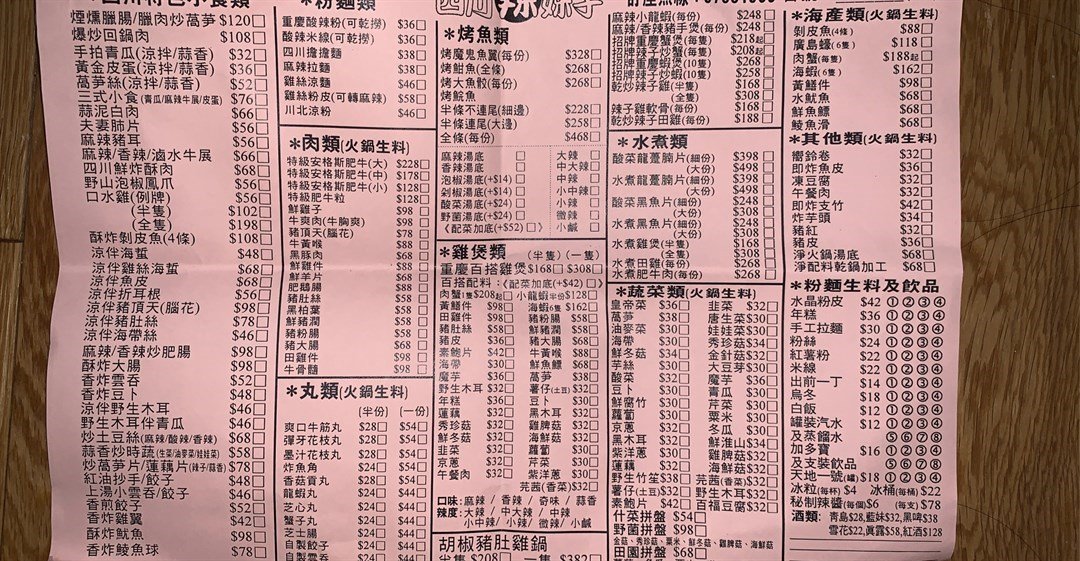 四川特色小食類
煙燻臘腸/臘肉炒萵笋 $120□
爆炒回鍋肉 $108□
手拍青瓜(涼拌/蒜香) $32□
黃金皮蛋(涼拌/蒜香) $36□
萵笋絲(涼拌/蒜香) $52□
三式小食(青瓜/麻辣牛展/皮蛋) $76□
蒜泥白肉 $66□
夫妻肺片 $56□
麻辣豬耳 $56□
麻辣/香辣/滷水牛展 $66□
四川鮮炸酥肉 $68□
野山泡椒鳳爪 $56□
口水雞(例牌) $56□
(半隻) $102□
(全隻) $198□
酥炸剝皮魚(4條) $108□
涼伴海蜇 $48□
涼伴雞絲海蜇 $68□
涼伴魚皮 $68□
涼伴折耳根 $56□
涼伴豬頂天(腦花) $98□
涼伴豬肚絲 $78□
涼伴海帶絲 $46□
麻辣/香辣炒肥腸 $98□
酥炸大腸 $98□
香炸雲吞 $52□
香炸豆卜 $48□
涼伴野生木耳 $46□
野生木耳伴青瓜 $46□
炒土豆絲(麻辣/酸辣/香辣) $68□
蒜香炒時蔬(生菜/油麥菜/娃娃菜) $58□
炒萵笋片/蓮藕片(辣子/蒜香) $78□
紅油抄手/餃子 $48□
上湯小雲吞/餃子 $46□
香煎餃子 $52□
香炸雞翼 $42□
酥炸魷魚 $98□
香炸鯪魚球 $78□
*粉麵類
重慶酸辣粉(可乾撈) $36□
酸辣米線(可乾撈) $36□
四川擔擔麵 $38□
麻辣拉麵 $38□
雞絲涼麵 $46□
雞絲粉皮(可轉麻辣) $58□
川北涼粉 $46□
*肉類(火鍋生料)
特級安格斯肥牛(大) $228□
特級安格斯肥牛(中) $178□
特級安格斯肥牛(小) $128□
特級肥牛粒 $128□
鮮雞子 $98□
牛爽肉(牛胸爽) $98□
豬頂天(腦花) $78□
牛黃喉 $88□
黑豚肉 $68□
鮮雞件 $88□
鮮羊片 $68□
肥鵝腸 $88□
豬肚絲 $58□
黑柏葉 $58□
鮮豬潤 $58□
豬粉腸 $58□
豬大腸 $68□
田雞件 $98□
牛骨髓 $98□
*丸類(火鍋生料)
(半份) (一份)
爽口牛筋丸 $28□ $54□
彈牙花枝丸 $28□ $54□
墨汁花枝丸 $28□ $54□
炸魚角 $24□ $54□
香菇貢丸 $28□ $54□
龍蝦丸 $24□ $44□
芝心丸 $24□ $44□
蟹子丸 $24□ $44□
芝士腸 $24□ $44□
自製餃子 $24□ $44□
自製雲吞 $24□ $44□
四川辣妹子
*烤魚類
烤魔鬼魚翼(每份) $328□
烤鮒魚(全條) $268□
烤大魚骰(每份) $268□
烤鯇魚
半條不連尾(細邊) $228□
半條連尾(大邊) $258□
全條(每份) $468□
麻辣湯底 □ 大辣 □
香辣湯底 □ 中大辣□
泡椒湯底(+$14) □ 中辣 □
剁椒湯底(+$14) □ 小中辣□
酸菜湯底(+$24) □ 小辣 □
野菌湯底(+$24) □ 微辣 □
《配菜加底(+$52)□》 小鹹 □
*雞煲類 (半隻) (一隻)
重慶百搭雞煲$168□ $308□
百搭配料:《配菜加底(+$42)□》
肉蟹1隻$208起□ 小龍蝦半份$128□
黃鱔件 $98□ 海蝦6隻 $162□
田雞件 $98□ 豬粉腸 $58□
豬肚絲 $58□ 鮮豬潤 $58□
豬皮 $36□ 豬大腸 $68□
素鮑片 $42□ 牛黃喉 $88□
海帶 $30□ 鮮魚鰾 $68□
魔芋 $36□ 萵笋 $38□
野生木耳 $32□ 薯仔(土豆) $32□
年糕 $36□ 豆卜 $30□
蓮藕 $32□ 黑木耳 $32□
秀珍菇 $32□ 雞脾菇 $32□
鮮冬菇 $32□ 海鮮菇 $32□
韮菜 $32□ 蘿蔔 $30□
京蔥 $32□ 芹菜 $30□
午餐肉 $32□ 紫洋蔥 $30□
芫茜(香菜)$32□
口味:麻辣 / 香辣 / 奇味 / 蒜香
辣度:大辣 / 中大辣 / 中辣
小中辣/ 小辣/ 微辣 / 小鹹
胡椒豬肚雞鍋
半隻 $208□ 一隻 $382□
麻辣小龍蝦(每份) $248□
麻辣/香辣豬手煲(每份) $248□
招牌重慶蟹煲(每隻) $218起□
招牌辣子炒蟹(每隻) $208起□
招牌重慶蝦煲(10隻) $268□
招牌辣子炒蝦(10隻) $258□
乾炒辣子雞(半隻) $168□
(全隻) $308□
辣子雞軟骨(每份) $168□
乾炒辣子田雞(每份) $188□
*水煮類
酸菜龍躉腩片(細份) $398□
(大份) $498□
水煮龍躉腩片(細份) $398□
(大份) $498□
酸菜黑魚片(細份) $268□
(大份) $308□
水煮黑魚片(細份) $268□
(大份) $308□
水煮雞煲(半隻) $168□
(全隻) $308□
水煮田雞(每份) $268□
水煮肥牛肉(每份) $268□
*蔬菜類(火鍋生料)
皇帝菜 $38□ 韮菜 $30□
萵笋 $38□ 唐生菜 $30□
油麥菜 $30□ 娃娃菜 $30□
海帶 $30□ 秀珍菇 $34□
鮮冬菇 $34□ 金針菇 $32□
芋絲 $32□ 大豆芽 $30□
酸菜 $32□ 魔芋 $36□
豆卜 $30□ 青瓜 $30□
鮮腐竹 $30□ 芹菜 $30□
蘿蔔 $30□ 粟米 $30□
京蔥 $32□ 冬瓜 $30□
黑木耳 $32□ 鮮淮山 $34□
紫洋蔥 $30□ 雞脾菇 $32□
蓮藕 $32□ 海鮮菇 $32□
野生竹笙 $38□ 芫茜(香菜)$32□
薯仔(土豆)$32□ 野生木耳 $32□
素鮑片 $42□ 百福豆腐 $32□
什菜拼盤 $54□
野菌拼盤 $98□
金菇、秀珍菇、粟米、鮮冬菇、雞脾菇、海鮮菇
田園拼盤 $68□
*海產類(火鍋生料)
剝皮魚(4條) $88□
廣島蠔(6隻) $118□
肉蟹(每隻) $188起□
海蝦(6隻) $162□
黃鱔件 $98□
水魷魚 $68□
鮮魚鰾 $68□
鯪魚滑 $68□
*其他類(火鍋生料)
響鈴卷 $32□
即炸魚皮 $36□
凍豆腐 $32□
午餐肉 $32□
即炸支竹 $42□
炸芋頭 $34□
豬紅 $32□
豬皮 $36□
淨火鍋湯底 $68□
淨配料乾鍋加工 $68□
*粉麵生料及飲品
水晶粉皮 $42 ①②③④
年糕 $36 ①②③④
手工拉麵 $30 ①②③④
粉絲 $24 ①②③④
紅薯粉 $22 ①②③④
米線 $22 ①②③④
出前一丁 $14 ①②③④
烏冬 $18 ①②③④
白飯 $12 ①②③④
罐裝汽水 $12 ①②③④
及蒸餾水 ⑤⑥⑦⑧
加多寶 $16 ①②③④
及支裝飲品 ⑤⑥⑦⑧
天地一號(罐)$18 ①②③④
冰粒(每杯) $4 冰桶(每桶) $22
秘制辣醬(每個)$6 (每支) $78
酒類: 青島$28,藍妹$32,黑啤$38
雪花$22,真露$58,紅酒$128